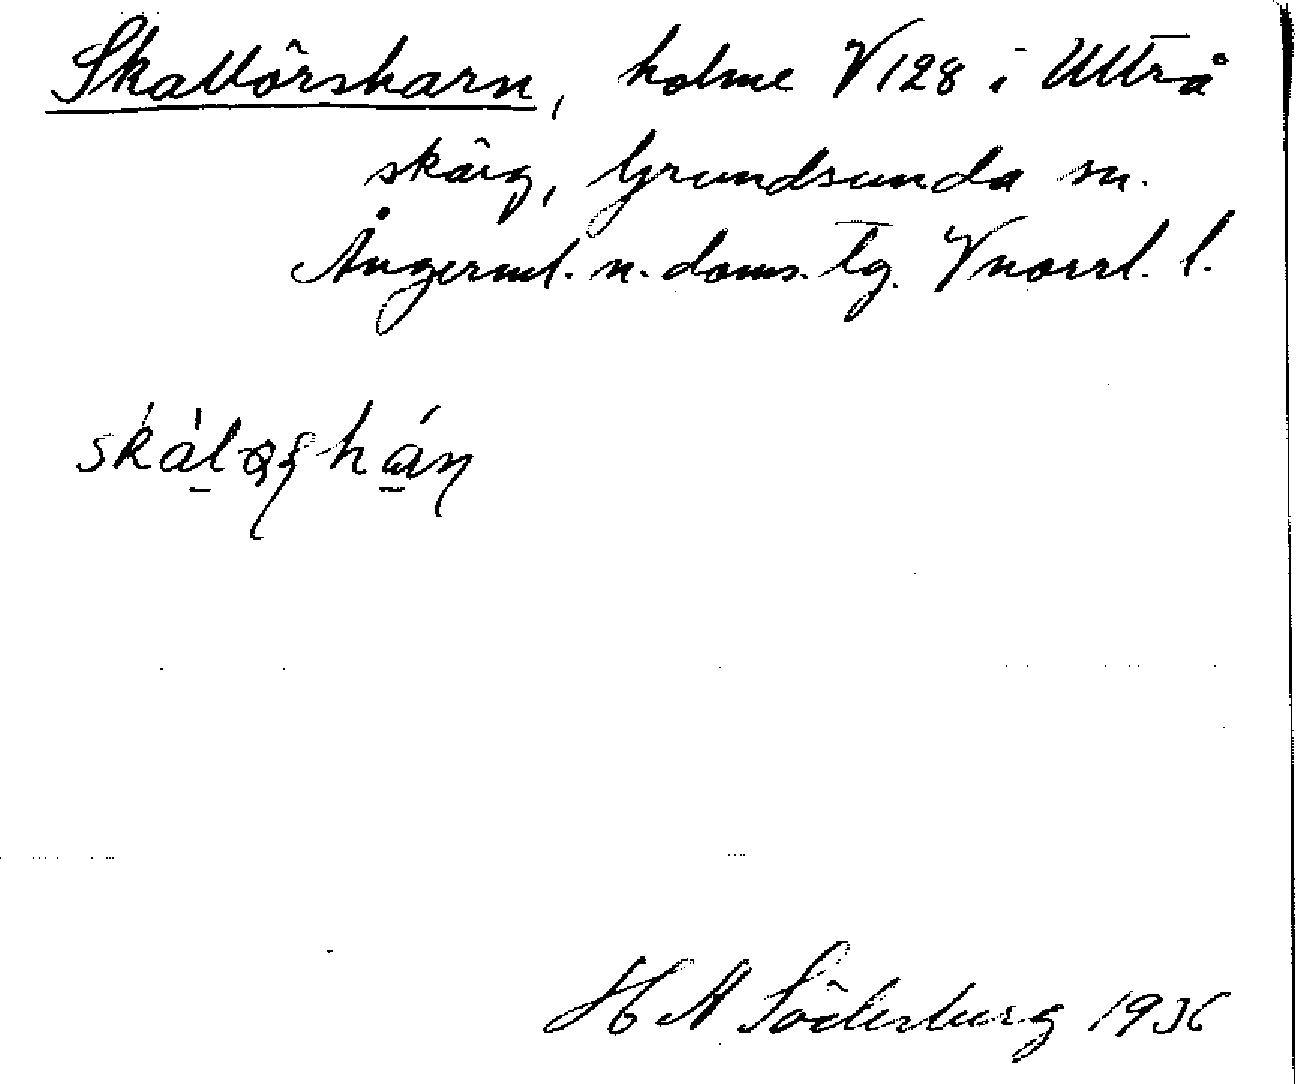 Skallörsharn, holme V128 i Ultrå
skärg, Grundsunda sn.
Ångerml. n. doms. tg. Vnorrl. l.
H A Söderburg 1936